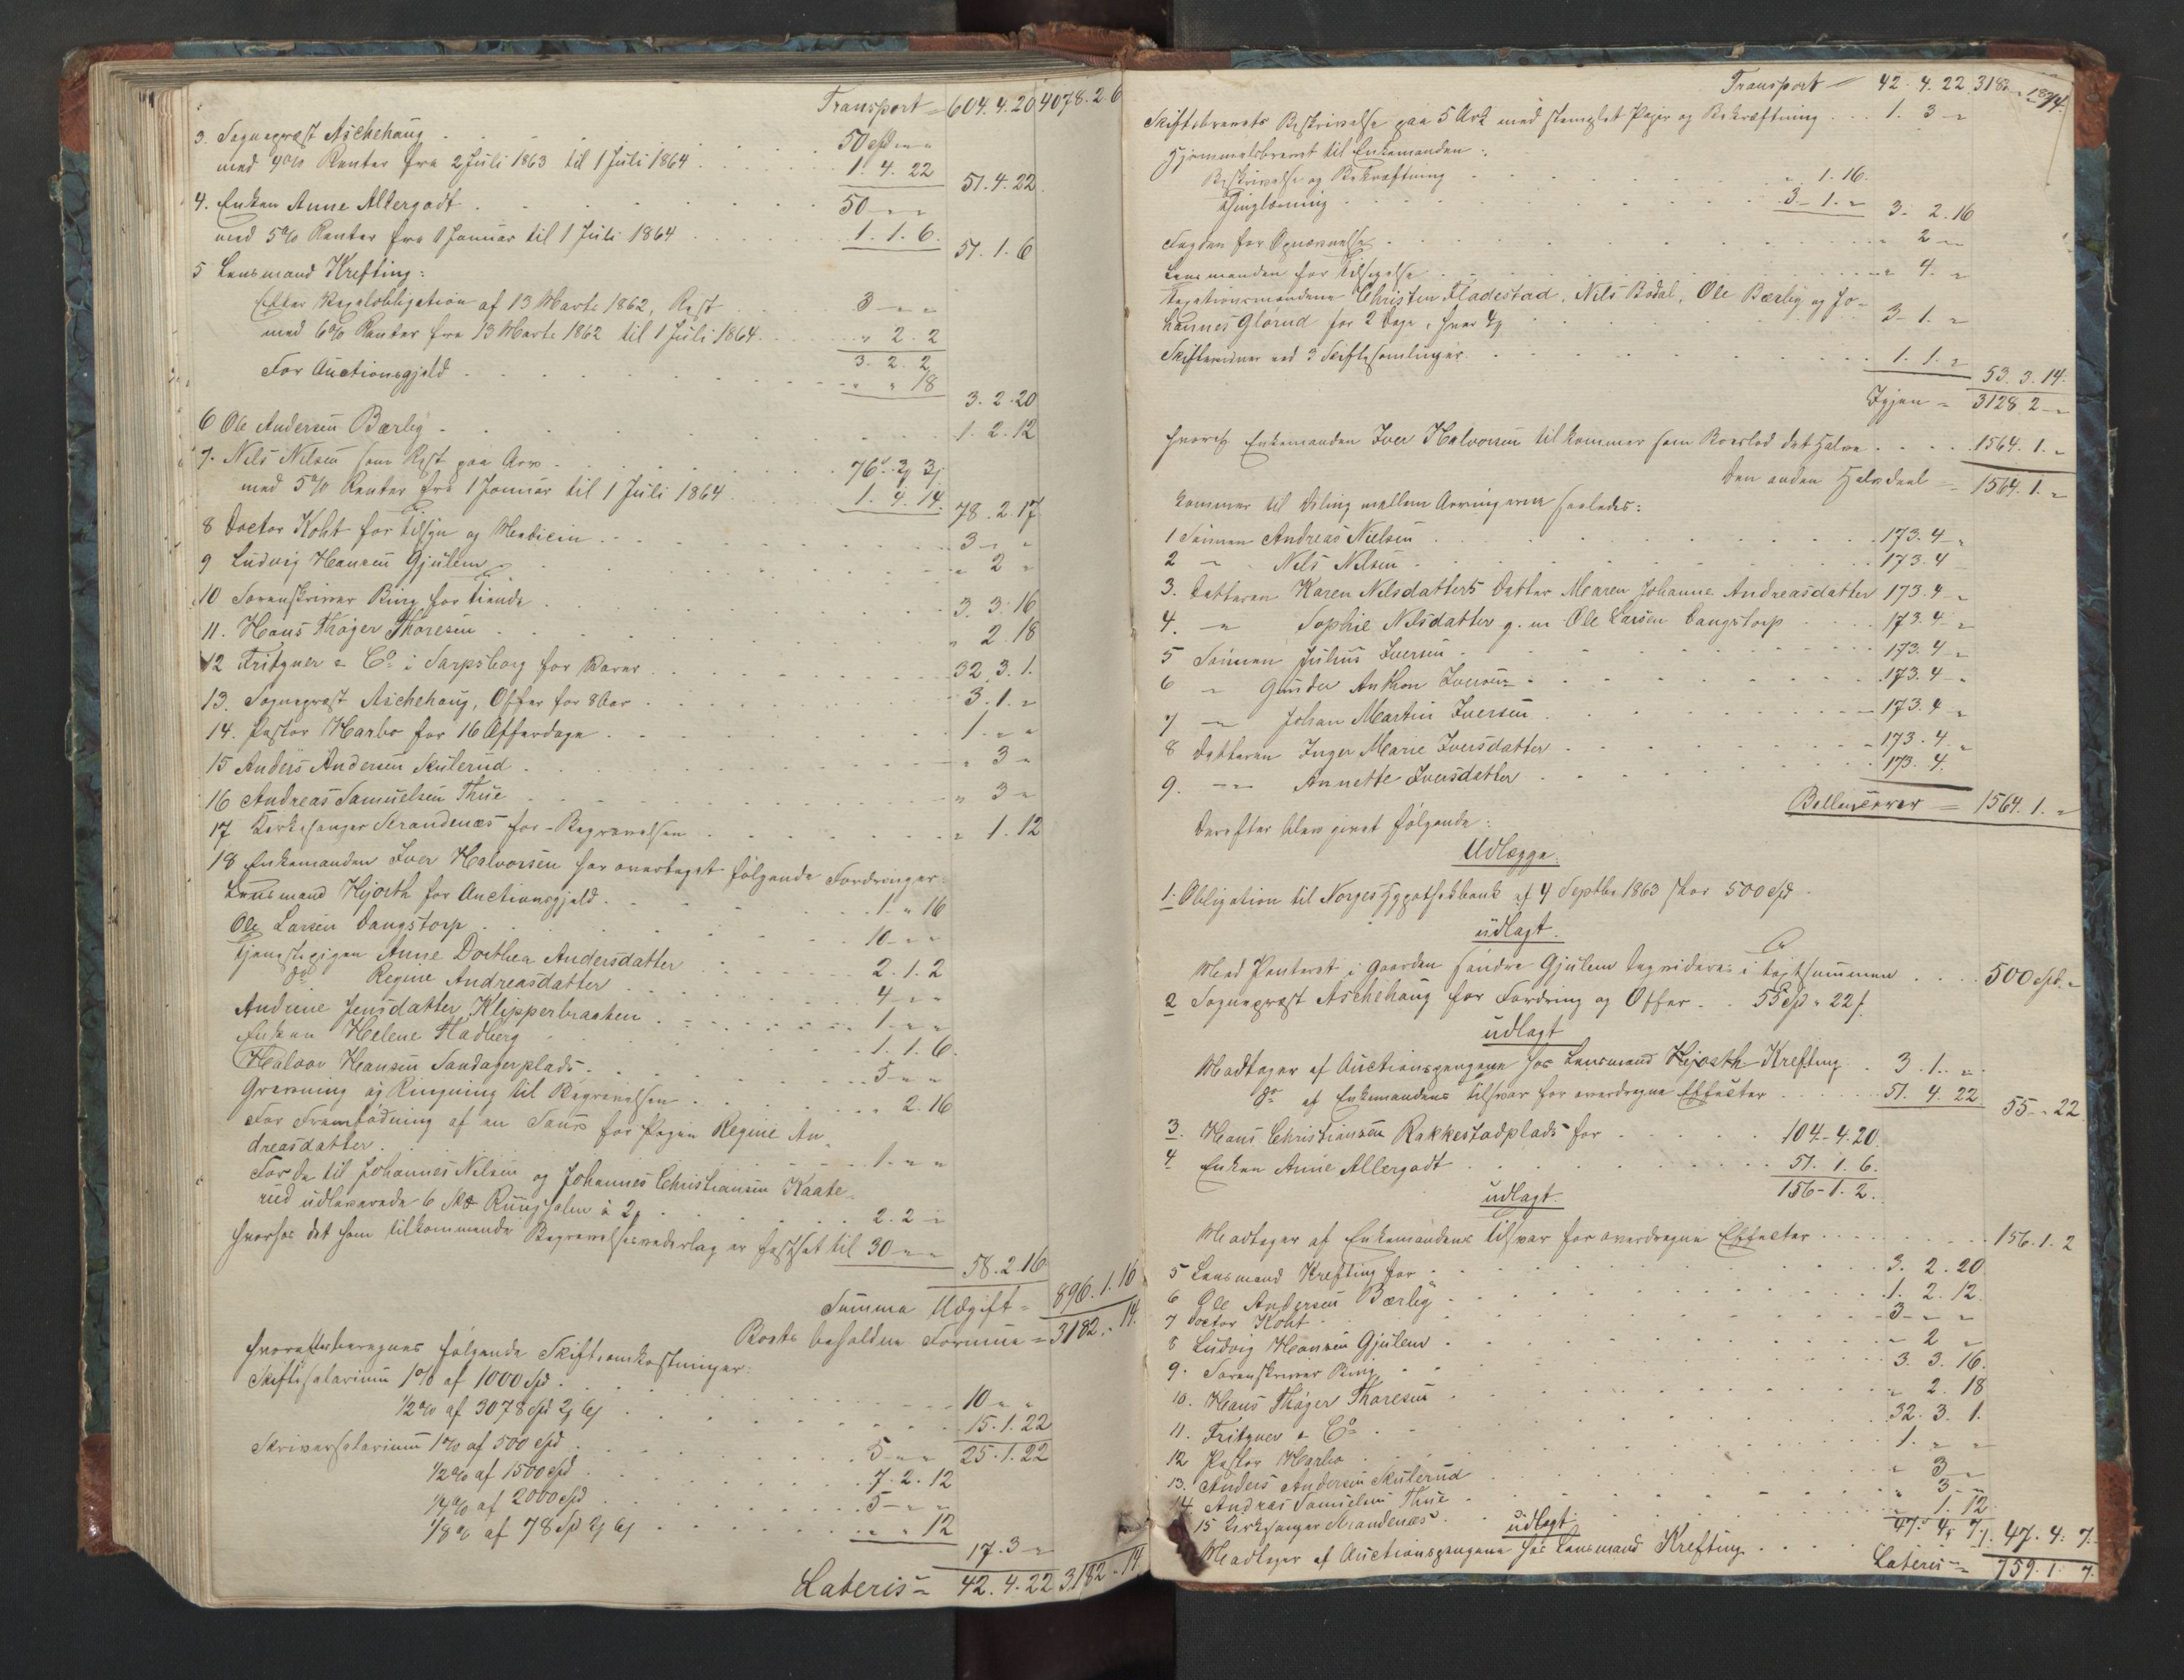 Transport = 604. 4. 20 4078. 2. 6
3. Sognepræst Aschehoug . . . 50 Spd " "
med 4% Renter fra 2 Juli 1863 til 1 Juli 1864 . . . 1. 4. 22 51. 4. 22
4. Enken Anne Allergodt . . . 50 - " "
med 5% Renter fra 1 Januar til 1 Juli 1864 . . . 1. 1. 6. 51. 1. 6
5 Lensmand Krefting:
Efter Regalobligation af 13 Marts 1862, Rest 3 - " "
med 6% Renter fra 13 Marts 1862 til 1 Juli 1864 . . . " 2. 2
3. 2. 2
For Auctionsgjeld . . . " " 18
3. 2. 20
6 Ole Andersen Bærby . . . 1. 2. 12
7. Nils Nilsen som Rest paa Arv . . . 76. 2 3
med 5% Renter fra 1 Januar til 1 Juli 1864 . . . 1. 4. 14. 78. 2. 17
8 Doctor Koht for Tilsyn og Medicin . . . 3 - " "
9 Ludvig Hansen Gjulem . . . " 2 "
10 Sorenskriver Ring for Tiende . . . 3. 3. 16
11. Hans Thøger Thoresen . . . " 2. 18
12 Fritzner & Co i Sarpsborg for Varer . . . 32. 3. 1.
13. Sognepræst Aschehoug, Offer for 8 Aar . . . 3. 1. "
14. Pastor Harbo for 16 Offerdage . . . 1. " "
15 Anders Andersen Skulerud . . . " 3 "
16 Andreas Samuelsen Thue . . . " 3 "
17 Kirkesanger Strandenæs for Begravelsen . . . " 1. 12
18 Enkemanden Iver Halvorsen har overtaget følgende Fordringer:
Lensmand Hjorth for Auctionsgjeld . . . 1. " 16
Ole Larsen Dangstorp . . . 10 - " "
Tjenestepigen Anne Dorthea Andersdatter . . . 2. 1. 2
do Regine Andreasdatter . . . 4 - " "
Andrine Jensdatter Klipperbraaten . . . 1. " "
Enken Helene Stadberg . . . 1. 1. 6.
Halvor Hansen Sandagerplads . . . 5 - " "
Gravning og Ringning til Begravelsen . . . " 2. 16
For Fremfødning af en Sau for Pigen Regine An-
dreasdatter . . . 1. " "
For de til Johannes Nilsen og Johannes Christiansen Kaate-
rud udleverede 6 à 2 . . . 2. 2 "
hvorhos det ham tilkommende Begravelsesvederlag er fastsat til 30 - " " 58. 2. 16
Summa Udgift = 896. 1. 16
Boets beholdne Formue = 3182. " 14.
hvorefter beregnes følgende Skifteomkostninger:
Skiftesalarium 1% af 1000 Spd . . . 10 " "
1/2% af 3078 Spd 2 6 . . . 15. 1. 22
25. 1. 22
Skriversalarium 1% af 500 Spd . . . 5 - " "
1/2% af 1500 Spd . . . 7. 2. 12
1/4% af 2000 Spd . . . 5 - " "
1/8% af 78 Spd 2 6 . . . " " 12
17. 3 "
Lateris = 42. 4. 22 3182 " 14
Transport = 42. 4. 22 3182 " 14.
Skiftebrevets Beskrivelse paa 5 Ark med stemplet Papir og Bekræftning . . . 1. 3 "
Hjemmelsbrevet til Enkemanden:
Beskrivelse og Bekræftning . . . " 1. 16.
Thinglæsning . . . 3 - 1. " 3. 2. 16
Fogden for Opnævnelse . . . " 2 "
Lensmanden for Tilsigelse . . . " 4. "
Taxationsmændene Christen Fladestad, Nils Bodal, Ole Bærby og Jo-
hannes Glørud for 2 Dage, hver 4 . . . 3 - 1. "
Skiftevidner ved 3 Skiftesamlinger . . . 1. 1. "
53. 3. 14.
Igjen = 3128. 2 "
hvoraf Enkemanden Iver Halvorsen tilkommer som Boeslod det halve . . . 1564. 1. "
Den anden Halvdeel = 1564. 1. "
kommer til Deling mellem Arvingerne saaledes:
1 Sønnen Andreas Nielsen . . . 173. 4 "
2 " Nils Nilsen . . . 173. 4
3. Datteren Karen Nilsdatters Datter Maren Johanne Andreasdatter 173. 4 "
4. " Sophie Nilsdatter g. m. Ole Larsen Dangstorp . . . 173. 4 "
5 Sønnen Julius Iversen . . . 173. 4 "
6 " Gunder Anthon Iversen . . . 173. 4 "
7 " Johan Martin Iversen . . . 173. 4 "
8 Datteren Inger Marie Iversdatter . . . 173. 4 "
9. " Annette Iversdatter . . . 173. 4.
Balancerer = 1564. 1. "
Derefter blev givet følgende:
Udlægge.
1. Obligation til Norges Hypothekbank af 4 Septbr 1863 stor 500 Spd
udlagt.
Med Panteret i Gaarden søndre Gjulem Indvideres i Taxtsummen . . . 500 Spd. "
2 Sognepræst Aschehoug for Fordring og Offer . . 55 Spd " 22
udlagt
Modtager af Auctionspengene hos Lensmand Hjorth Krefting . . 3. 1. "
do af Enkemandens Tilsvar for overdragne Effecter . . . 51. 4. 22 55 " 22
3. Hans Christiansen Rakkestadplads for . . . 104 - 4. 20.
4 Enken Anne Allergodt . . . 51. 1. 6.
udlagt. 156 - 1. 2.
Modtager af Enkemandens Tilsvar for overdragne Effecter . . . 156. 1. 2
5 Lensmand Krefting for . . . 3. 2. 20
6 Ole Andersen Bærby . . . 1. 2. 12.
7 Doctor Koht . . . 3 - " "
8 Ludvig Hansen Gjulem . . . " 2 "
9. Sorenskriver Ring . . . 3. 3. 16.
10. Hans Thøger Thoresen . . . " 2. 18
11. Fritzner & Co . . . 32. 3. 1.
12 Pastor Harbo . . . 1. " "
13. Anders Andersen Skulerud . . . " 3 "
14 Andreas Samuelsen Thue . . . " 3 "
15 Kirkesanger Strandenæs . . . " 1. 12
udlagt 47. 4. 7. 47. 4. 7.
Modtager af Auctionspengene hos Lensmand Krefting . . .
Lateris = 759. 1. 7.